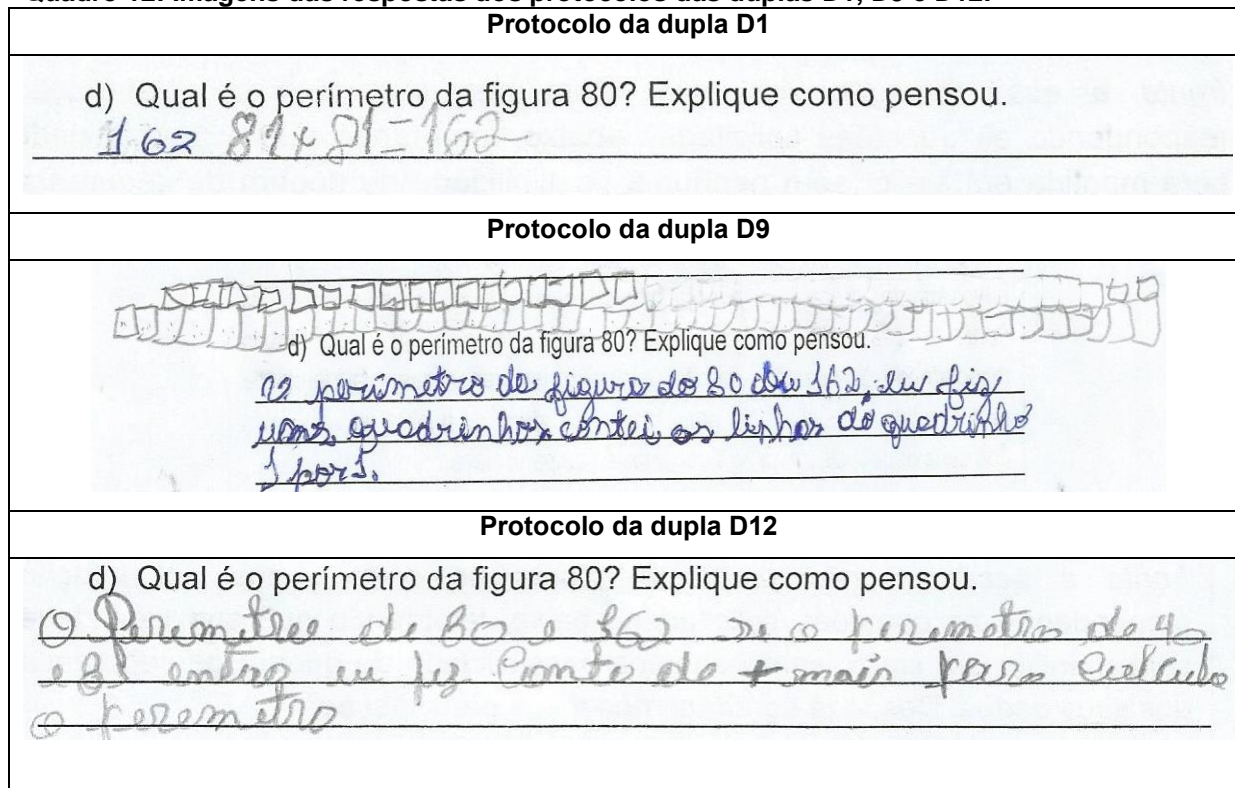 Quadro 12: Imagens das respostas dos protocolos das duplas D1, D9 e D12.
Protocolo da dupla D1
d) Qual é o perímetro da figura 80? Explique como pensou.
162 81+81=162
Protocolo da dupla D9
d) Qual é o perímetro da figura 80? Explique como pensou.
O perimetro da figura do 80 deu 162, eu fiz
uns quadrinhos contei as linhas do quadrinho
1 por 1.
Protocolo da dupla D12
d) Qual é o perímetro da figura 80? Explique como pensou.
O Perimetro de 80 e 162 se o perimetro de 40
e 81 entao eu fiz conta de + mais para
o peremetro